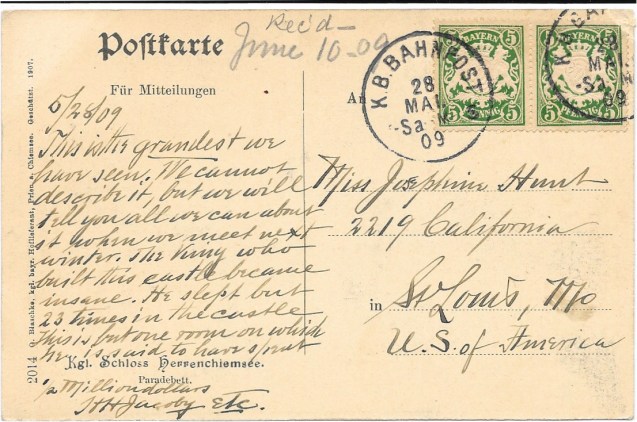 Rec'd –
June 10-09
Postkarte
Für Mitteilungen
An
BAYERN
5 5
PFENNIG
BAYERN
5 5
K.B.BAHNPOST
28
MAI
09
28
MAI
09
5/28/09
This is the grandest we
have seen. We cannot
describe it, but we will
tell you all we can about
it when we meet next
winter. The King who
built this castle became
insane. He slept but
23 times in the castle
This is but one room on which
he is said to have spent
Kgl. Schloss Herrenchiemsee.
Paradebett.
1/2 Million dollars
HH Jacoby Etc.
Miss Josephine Hunt
2219 California
in St Louis, Mo
U.S. of America
2014 Blaschka, kgl. bayr. Hoflieferant, Prien a. Chiemsee. Geschützt. 1907.